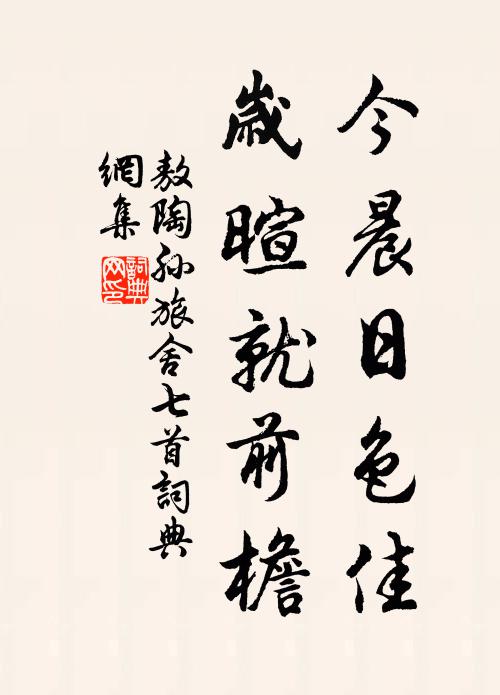 今晨日色佳
歲暄就前檐
敖陶孫旅舍七首詞典
網集
詞典
网印